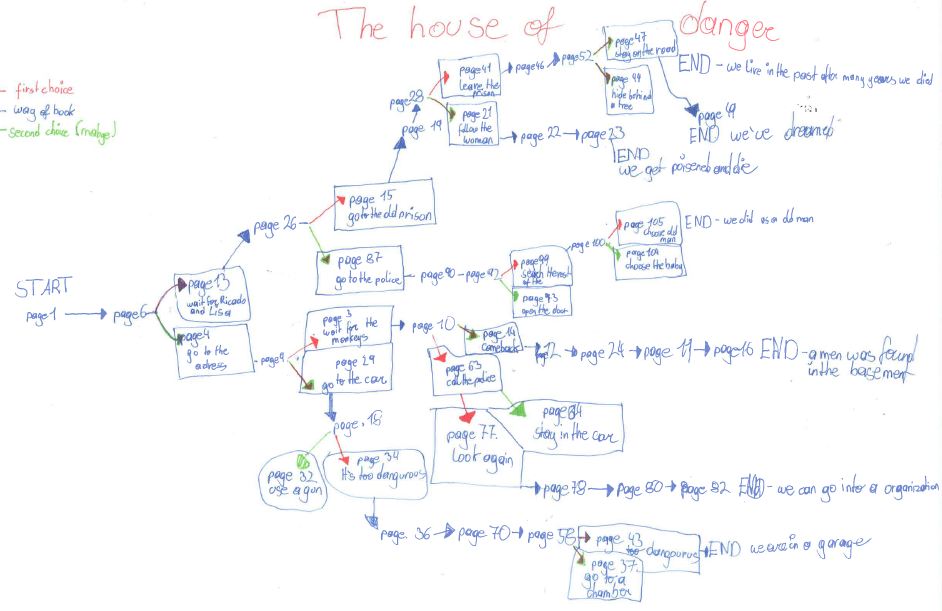 The house of danger
first choice
way of book
second choice (mabge)
START
page 1
page 6
page 13
wait for Ricado
and Lisa
page 4
go to the
adress
page 26
page 15
go to the old prison
page 87
go to the police
page 19
page 28
page 41
leave the
prison
page 21
follow the
woman
page 46
page 52
page 47
stay on the road
page 44
hide behind
a tree
END - we live in the past after many yeares we died
page 49
END we've dreamed
page 22
page 23
END
we get poisened and die
page 90
page 92
page 99
search the rest
of the
page 93
open the door
page 100
page 105
choose old
man
page 104
choose the baby
END - we died as a old man
page 9
page 3
wait for the
monkeys
page 29
go to the car
page 10
page 14
come back
page 12
page 24
page 11
page 16
END - a men was found
in the basement
page 63
call the police
page 77.
Look again
page 84
stay in the car
page 78
page 80
page 82
END - we can go inter a organization
page 18
page 32
use a gun
page 34
It's too dangurous
page 36
page 70
page 58
page 43
too dangourus
page 37.
go to a
chamber
END we are in a garage